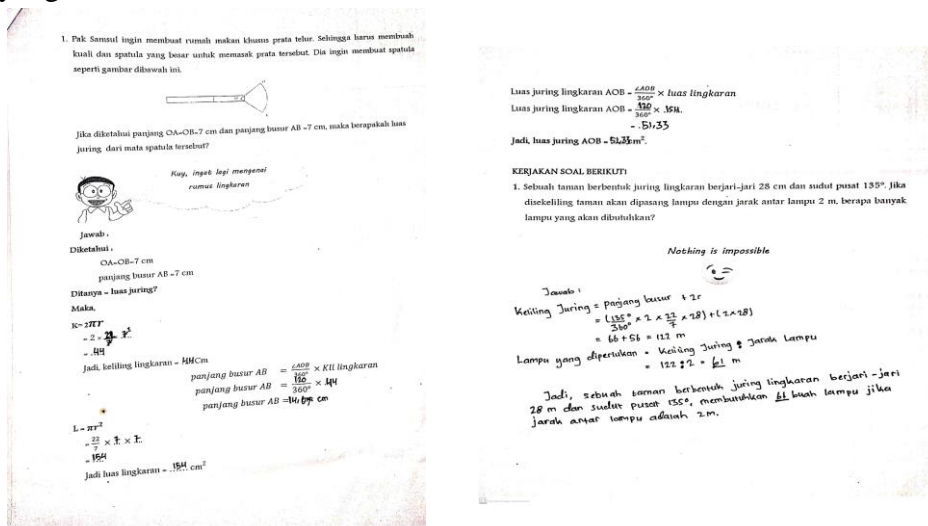 1. Pak Samsul ingin membuat rumah makan khusus prata telur. Sehingga harus membuat
kuali dan spatula yang besar untuk memasak prata tersebut. Dia ingin membuat spatula
seperti gambar dibawah ini.
Jika diketahui panjang OA=OB=7 cm dan panjang busur AB =7 cm, maka berapakah luas
juring dari mata spatula tersebut?
Kuy, ingat lagi mengenai
rumus lingkaran
Jawab :
Diketahui :
OA=OB=7 cm
panjang busur AB =7 cm
Ditanya = luas juring?
Maka,
K= 2πr
= 2 ×
= 44
Jadi, keliling lingkaran = 44 cm
panjang busur AB = ∠AOB/360° × Kll lingkaran
panjang busur AB = 120/360° × 44
panjang busur AB = cm
L = πr²
= 22/7 × 7 × 7
= 154
Jadi luas lingkaran = 154 cm²
Luas juring lingkaran AOB = ∠AOB/360° × luas lingkaran
Luas juring lingkaran AOB = 120/360° × 154
= 51,33
Jadi, luas juring AOB = 51,33 cm².
KERJAKAN SOAL BERIKUT!
1. Sebuah taman berbentuk juring lingkaran berjari-jari 28 cm dan sudut pusat 135°. Jika
disekeliling taman akan dipasang lampu dengan jarak antar lampu 2 m, berapa banyak
lampu yang akan dibutuhkan?
Nothing is impossible
Jawab :
Keliling Juring = panjang busur + 2r
= (135°/360° × 2 × 22/7 × 28) + (2×28)
= 66 + 56 = 122 m
Lampu yang diperlukan = Keliling Juring : Jarak Lampu
= 122 : 2 = 61 m
Jadi, sebuah taman berbentuk juring lingkaran berjari-jari
28 m dan sudut pusat 135°, membutuhkan 61 buah lampu jika
jarak antar lampu adalah 2m.